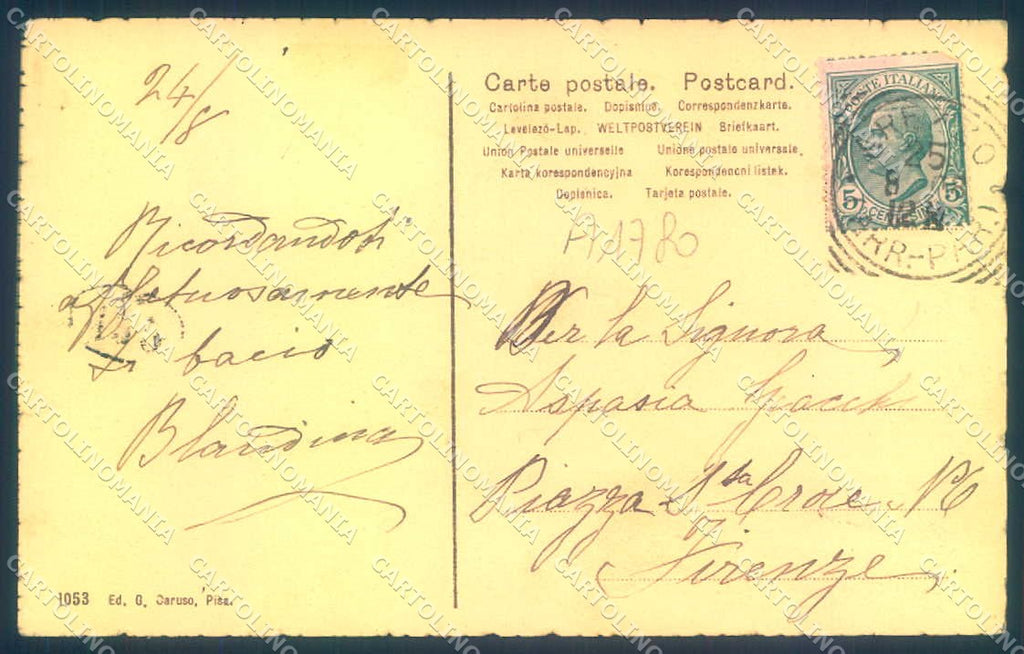 24/8
Ricordandoti
affettuosamente
ti bacio
Blandina
1053 Ed. G. Caruso, Pisa.
Carte postale. Postcard.
Cartolina postale. Dopisnine. Correspondenzkarte.
Levelező-Lap. WELTPOSTVEREIN Briefkaart.
Union Postale universelle Unione postale universale.
Karta korespondencyjna Korespondencni listek.
Dopisnica. Tarjeta postale.
POSTE ITALIANE
5 CENTESIMI 5
25
8
12
A11780
Per la Signora
Aspasia
Piazza Sta Croce
Firenze
CARTOLINOMANIA